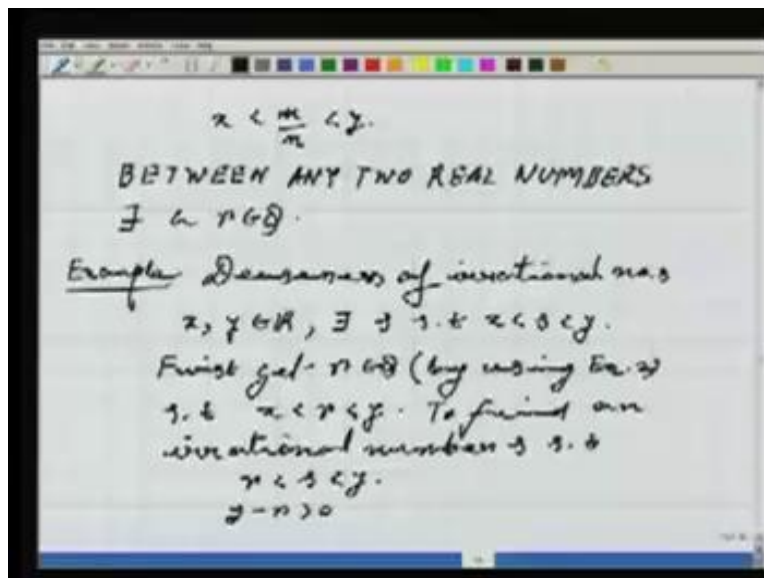 x < m/n < y.
BETWEEN ANY TWO REAL NUMBERS
∃ a r∈Q.
Example Denseness of irrational nos
x, y ∈ R, ∃ s s.t x < s < y.
First get r∈Q (by using Ex. 2)
s.t x < r < y. To find an
irrational number s s.t
r < s < y.
y - r > 0